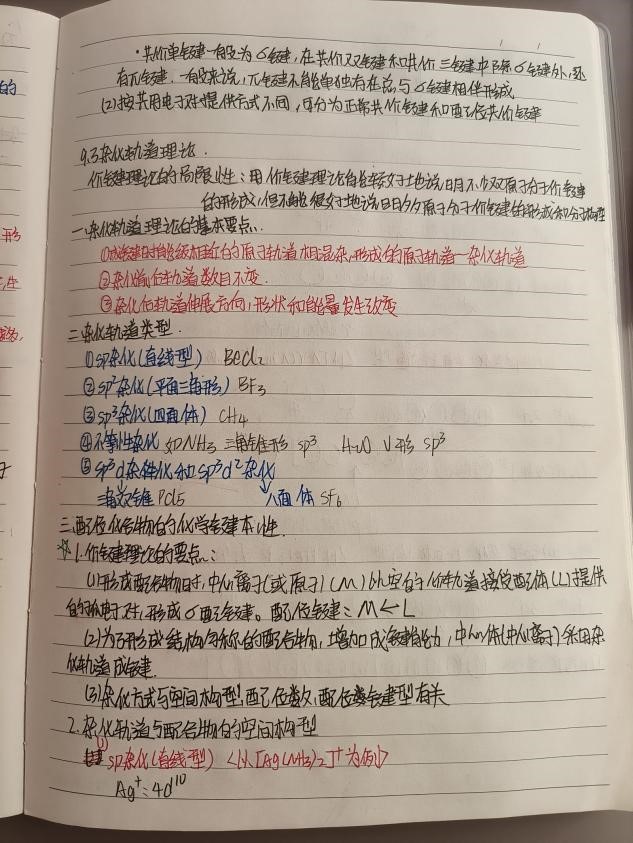 ·共价单键一般为σ键,在共价双键和共价三键中除σ键外,还
有π键.一般来说,π键不能单独存在总与σ键相伴形成
(2)按共用电子对提供方式不同,可分为正常共价键和配位共价键
9.3杂化轨道理论.
价键理论的局限性:用价键理论能较好地说明不少双原子分子价键
的形成,但不能很好地说明多原子分子价键的形成和分子构型
一.杂化轨道理论的基本要点.
①成键时能级相近的原子轨道相混杂,形成的原子轨道一杂化轨道
②杂化前后轨道数目不变.
③杂化后轨道伸展方向,形状和能量发生改变
二.杂化轨道类型.
①sp杂化(直线型) BeCl2
②sp²杂化(平面三角形) BF3
③sp³杂化(四面体) CH4
④不等性杂化 如NH3 三角锥形 sp³ H2O V形 sp³
⑤sp³d杂化和sp³d²杂化
三角双锥 PCl5 八面体 SF6
三.配位化合物的化学键本性.
☆1.价键理论的要点:
(1)形成配合物时,中心离子(或原子)(M)以空的价轨道接受配体(L)提供
的孤电子对,形成σ配键。配位键:M←L
(2)为了形成结构匀称的配合物,增加成键能力,中心体(中心离子)采用杂
化轨道成键.
(3)杂化方式与空间构型,配位数,配位键型有关
2.杂化轨道与配合物的空间构型
(1)sp杂化(直线型) <以[Ag(NH3)2]⁺为例>
Ag⁺:4d¹⁰